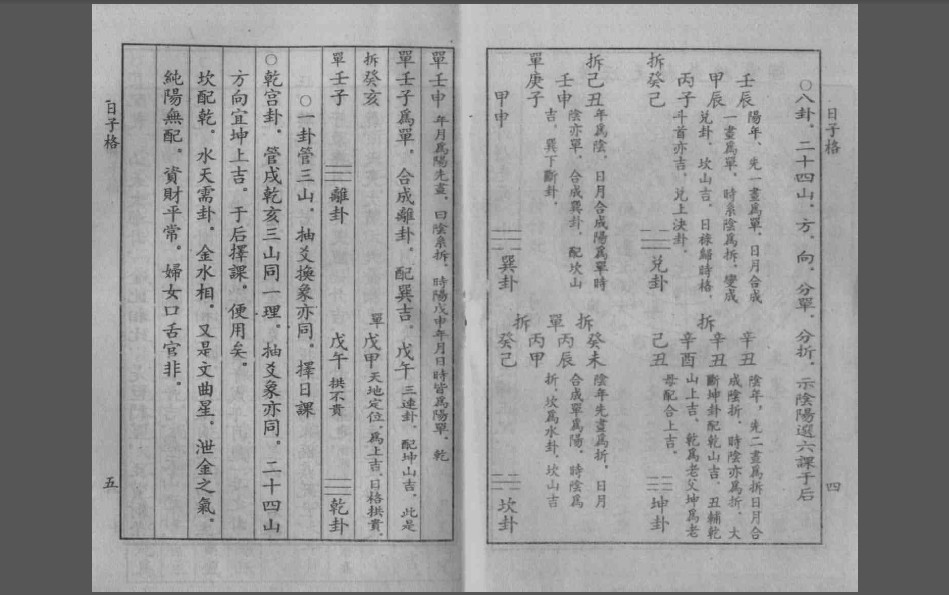 日子格
四
○八卦．二十四山．方．向．分單．分折．示陰陽選六課于后
壬辰
甲辰
丙子
拆癸己
陽年、先一畫爲單．日月合成
一畫爲單．時系陰爲拆．變成
兌卦、坎山吉．日祿歸時格．
斗首亦吉。兌上决卦
兌卦
拆己丑
壬申
單庚子
甲申
年爲陰．日月合成陽爲單時
陰亦單．合成巽卦．配坎山
吉．巽下斷卦．
巽卦
辛丑
拆辛丑
辛酉
己丑
陰年，先二畫爲拆日月合
成陰折．時陰亦爲折．大
斷坤卦配乾山吉．丑輔乾
山上吉。乾爲老父坤爲老
母配合上吉。
坤卦
拆癸未
單丙辰
丙甲
拆癸己
陰年先畫爲折．日月
合成單爲陽．時陰爲
折．坎爲水卦．坎山吉
坎卦
單壬申年月爲陽先畫．日陰系拆．時陽戊申年月日時皆爲陽單．乾
單壬子爲單．合成離卦．配巽吉．戊午三連卦．配坤山吉．此是
拆癸亥
單戊甲天地定位．爲上吉．日格拱貴．
單壬子
離卦
戊午拱不貴
乾卦
○一卦管三山．抽爻換象亦同．擇日課
○乾宫卦．管戌乾亥三山同一理．抽爻象亦同．二十四山
方向宜坤上吉。于后擇課。便用矣。
坎配乾．水天需卦。金水相．又是文曲星．泄金之氣．
純陽無配．資財平常．婦女口舌官非。
日子格
五